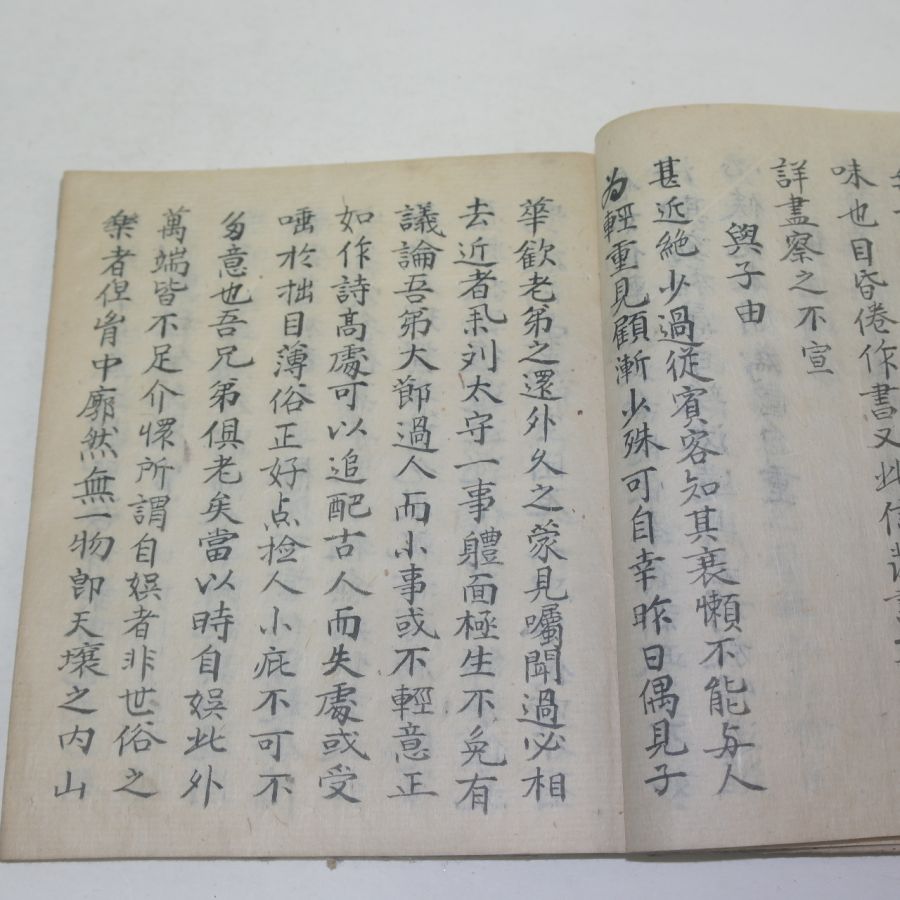 味也目昏倦作書又此信
詳盡察之不宣
與子由
甚近絶少過從賓客知其衰懶不能与人
为輕重見顧漸少殊可自幸昨日偶見子
華歡老弟之還外久之蒙見囑聞過必相
去近者列太守一事軆面極生不免有
議論吾弟大節過人而小事或不輕意正
如作詩高處可以追配古人而失處或受
嗤於拙目薄俗正好点捡人小疵不可不
多意也吾兄弟俱老矣當以時自娯此外
萬端皆不足介懷所謂自娯者非世俗之
樂者但胷中廓然無一物即天壤之内山